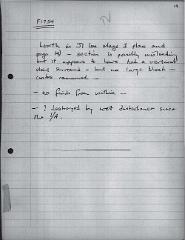 F1754
Hearth in J1 (see stage I plans and
page 14) - section is possibly misleading
but it appears to have had a vertical
slab surround - but no large blocks -
centre removed -
- no finds from within -
- ? destroyed by west disturbance since
the I/A.